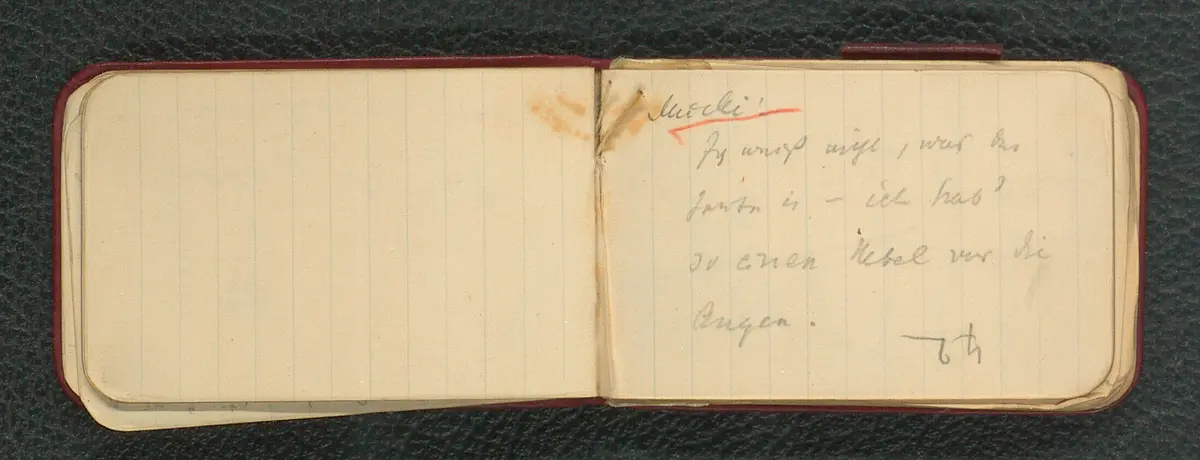 Mucki!
Ich weiß nicht, was das
heute is – ich hab'
so einen Nebel vor die
Augen.